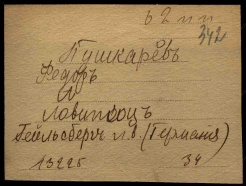 62 пп
342
Пушкаревъ
Федоръ
Ловит
Гейльсберг л.в. (Германия)
13225 34